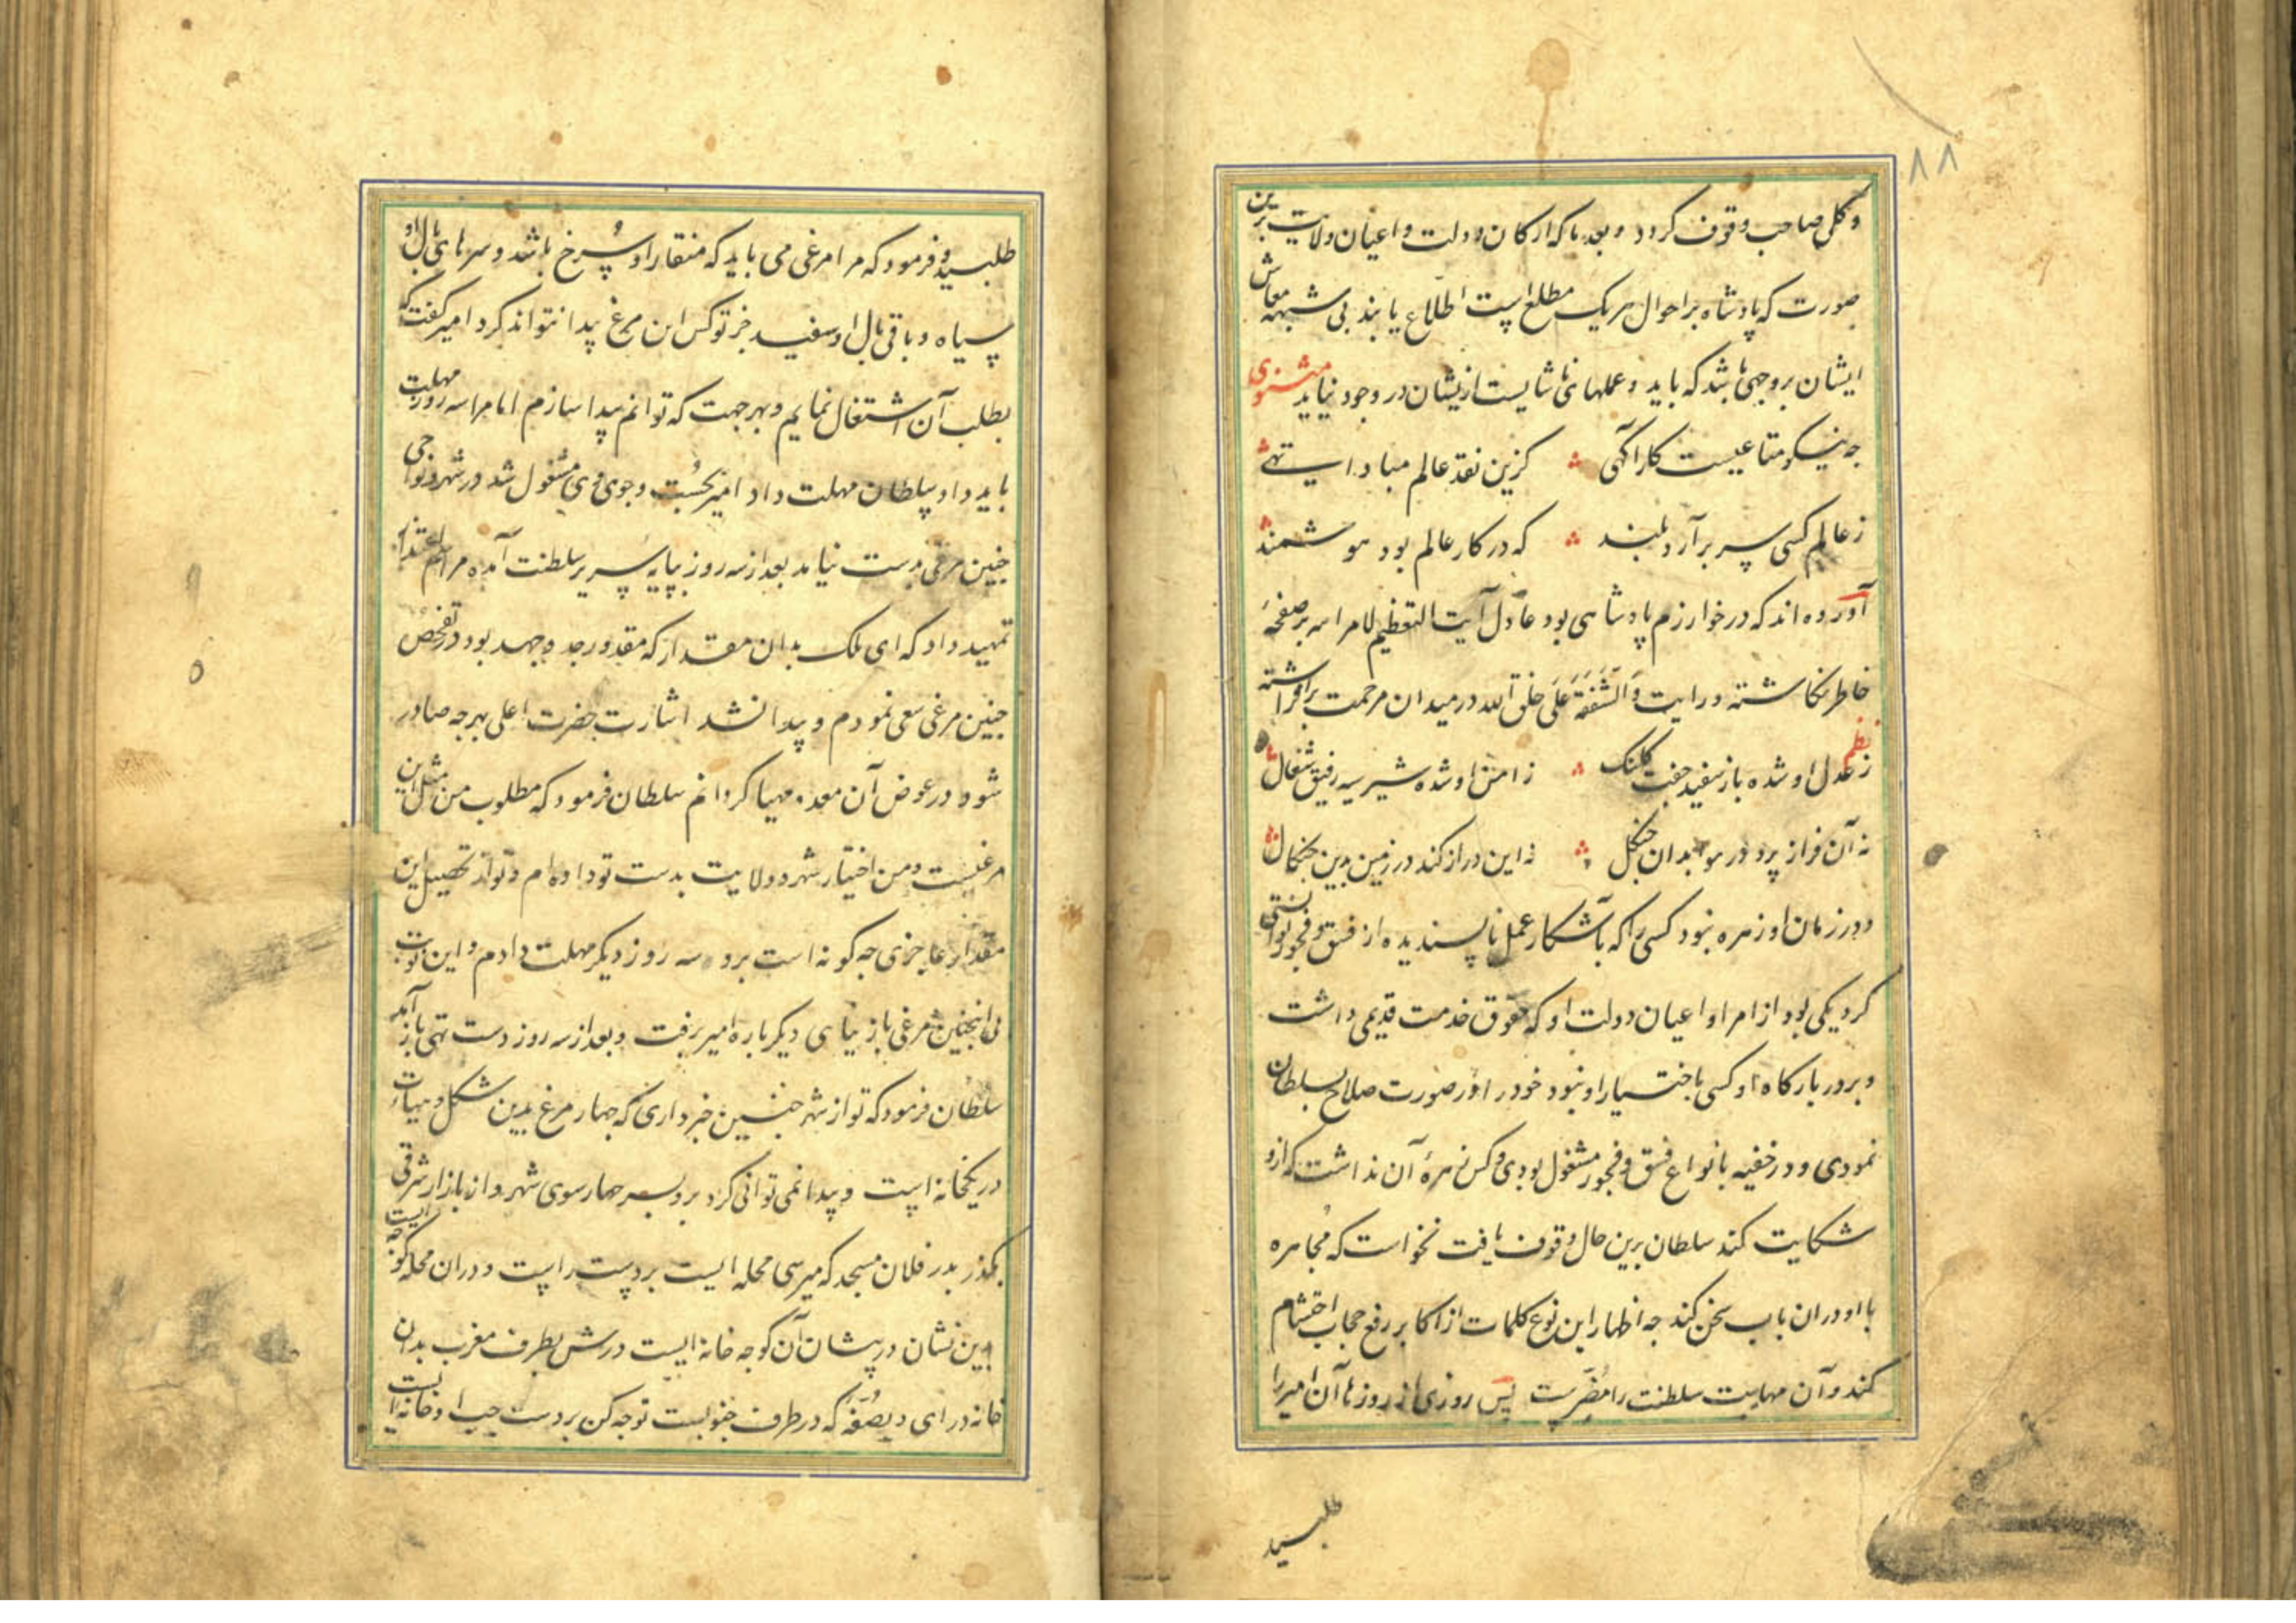 ۸۸
و کلی صاحب وقوف کردد و بعد ما که ارکان دولت و اعیان ولایت برین
صورت که پادشاه بر احوال هر یک مطلع است اطلاع یابند بی شبهه معاش
ایشان بر وجهی باشد که باید و عملهای ناشایست ازیشان در وجود نیاید مثنوی
جه نیکو متاعیست کار آکهی کزین نقد عالم مبادا تهی
ز عالم کسی سر برآرد بلند که در کار عالم بود هوشمند
آورده اند که در خوارزم پادشاهی بود عادل آیت التعظیم لامر الله بر صفحهٔ
خاطر نکاشته و رایت وَالشَّفَقَة عَلَی خلق الله در میدان مرحمت برافراشته
نظم
ز عدل او شده باز سفید جفت کلنک ز امن او شده شیر سیه رفیق شغال
نه آن فراز پرد در هوا بدان جنکل نه این دراز کند در زمین بدین جنکال
و در زمان او زهره نبود کسی را که بآشکار عمل ناپسندیده از فسق و فجور توانستی
کرد یکی بود از امرا و اعیان دولت او که حقوق خدمت قدیمی داشت
و بر در بارکاه او کسی باختیار او نبود خود را در صورت صلاح بسلطان
نمودی و در خفیه بانواع فسق و فجور مشغول بودی و کس زهرهٔ آن نداشت که ازو
شکایت کند سلطان برین حال وقوف یافت نخواست که مُجاهره
با او در آن باب سخن کند جه اظهار این نوع کلمات از اکابر رفع حجاب احتشام
کند و آن مهابت سلطنت را مُضَرّست پس روزی از روزها آن امیر را
طلبید
طلبید و فرمود که مرا مرغی می باید که منقار او سُرخ باشد و سرهای بال او
سیاه و باقی بال او سفید جز تو کس این مرغ پیدا نتواند کرد امیر کفت که
بطلب آن اشتغال نمایم و بهر جهت که توانم پیدا سازم اما مرا سه روز مهلت
باید داد سلطان مهلت داد امیر بجُست و جوی وی مشغول شد در شهر و نواحی
جنین مرغی بدست نیامد بعد از سه روز بپایه سریر سلطنت آمده مراسم اعتذار
تمهید داد که ای ملک بدان مقدار که مقدور جد و جهد بود در تفحص
جنین مرغی سعی نمودم و پیدا نشد اشارت حضرت اعلی بهر جه صادر
شود در عوض آن معد و مهیا کردانم سلطان فرمود که مطلوب من مثل این
مرغیست و من اختیار شهر و ولایت بدست تو داده ام و تو از تحصیل این
مقدار عاجزی جه کونه است برو سه روز دیکر مهلت دادم و این نوبت
بی اینجنین مرغی باز نیایی دیکر باره امیر برفت و بعد از سه روز دست تهی باز آمد
سلطان فرمود که تو از شهر جنین خبر داری که جهار مرغ بدین شکل و هیأت
در یکخانه است و پیدا نمی توانی کرد برو بسر جهار سوی شهر و از بازار شرقی
بکذر بدر فلان مسجد که میرسی محله ایست بر دست راست و در آن محله کوجه ایست
بدین نشان در پیشان آن کوجه خانه ایست درش بطرف مغرب بدان
خانه در ای و بصُفّه که در طرف جنوبست توجه کن بر دست جپ او خانه ایست